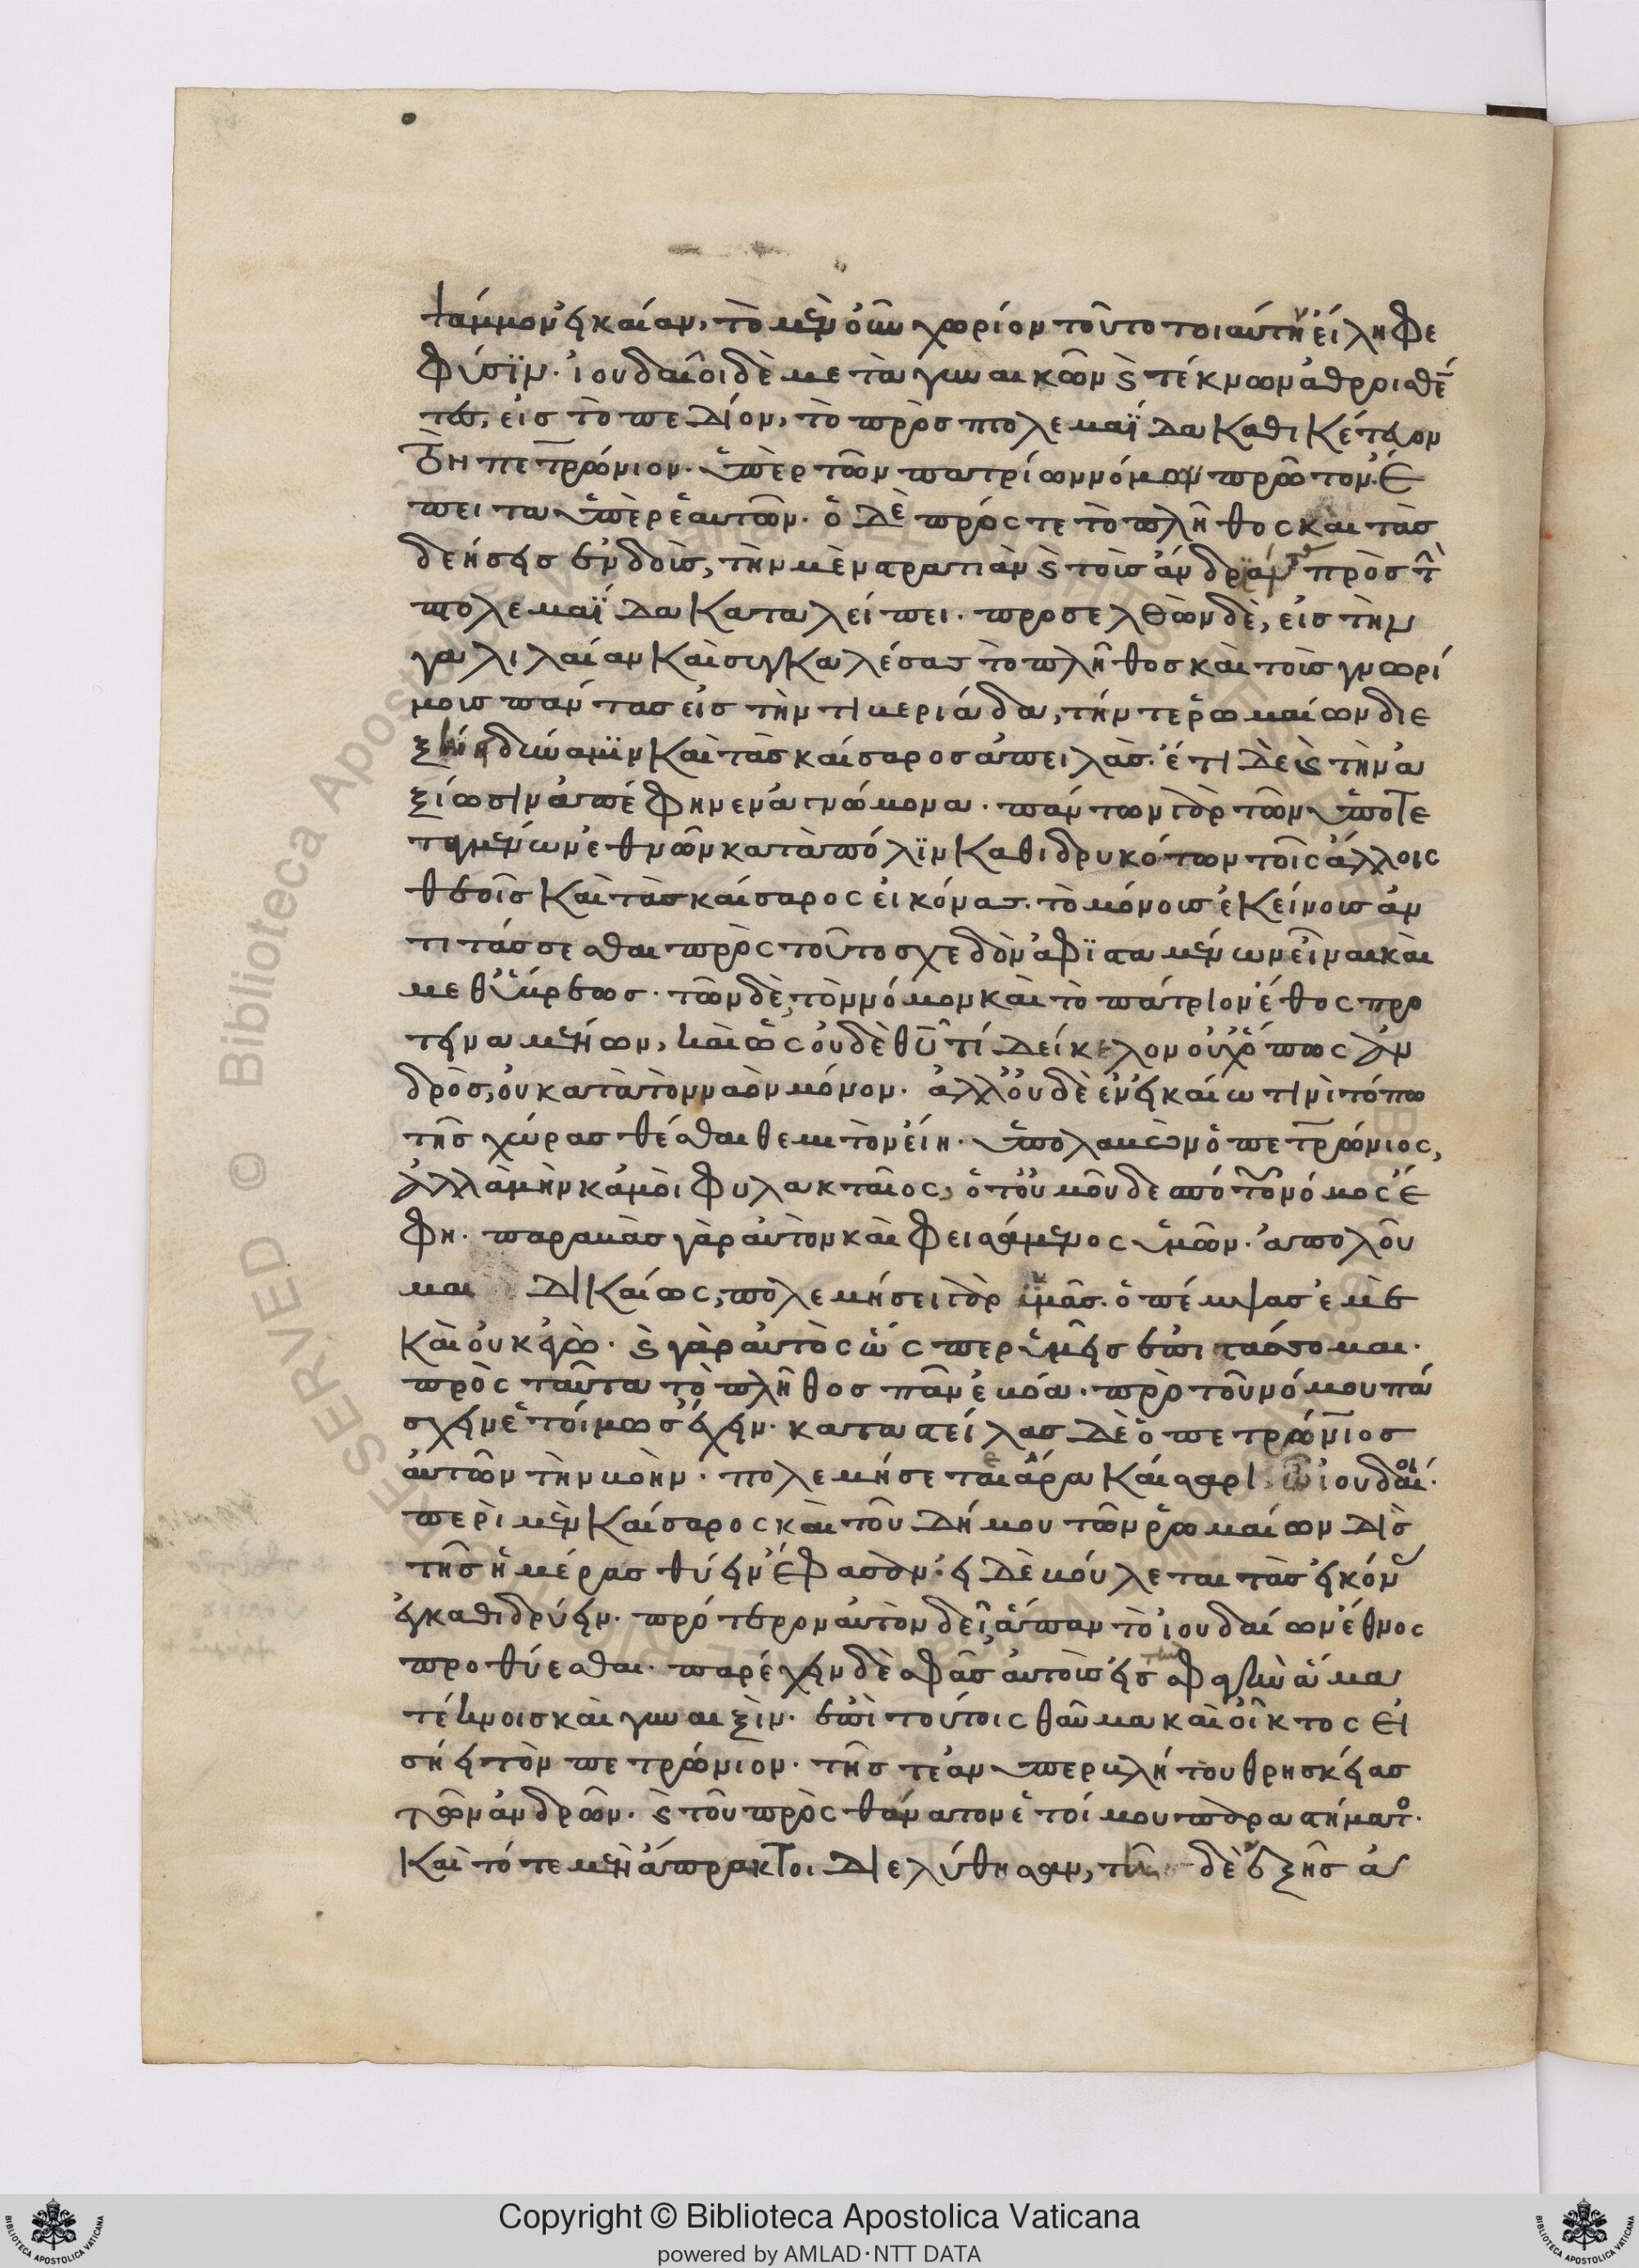 ψάμμον εἰκαίαν, τὸ μὲν οὖν χωρίον τοῦτο τοιαύτην εἴληφε
φύσϊν. ἰουδαῖοι δὲ μετὰ γυναικῶν καὶ τέκνων ἀθροισθέν
τες, εἰς τὸ πεδίον, τὸ πρὸς πτολεμαΐδα καθικέτευον
τὸν πετρώνιον. ὑπὲρ τῶν πατρίων νόμων πρῶτον. ἔ
πειτα ὑπὲρ ἑαυτῶν. ὁ δὲ πρός τε τὸ πλῆθος καὶ τὰς
δεήσεις ἐνδοὺς, τὴν μὲν στρατιὰν καὶ τοὺς ἀνδριάντας πρὸς τῆ
πτολεμαΐδα καταλείπει. προσελθὼν δὲ, εἰς τὴν
γαλιλαίαν καὶ συγκαλέσας τὸ πλῆθος καὶ τοὺς γνωρί
μους πάντας εἰς τὴν τιβεριάδα, τήν τε ῥωμαίων διε
ξήει δύναμϊν καὶ τὰς καίσαρος ἀπειλάς. ἔτι δὲ καὶ τὴν ἀ
ξίωσιν ἀπέφηνεν ἀγνώμονα. πάντων γὰρ τῶν ὑποτε
ταγμένων ἐθνῶν κατὰ πόλϊν καθιδρυκότων τοῖς ἄλλοις
θεοῖς καὶ τὰς καίσαρος εἰκόνας. τὸ μόνους ἐκείνους ἀν
τιτάσσεσθαι πρὸς τοῦτο σχεδὸν ἀφϊσταμένων εἶναι καὶ
μεθ' ὕβρεως. τῶν δὲ, τὸν νόμον καὶ τὸ πάτριον ἔθος προ
τειναμένων, καὶ ὡς οὐδὲ θῦ τί δείκελον οὐχ ὅπως ἀν
δρὸς, οὐ κατὰ τὸν ναὸν μόνον. ἀλλ' οὐδὲ ἐν εἰκαίω τινὶ τόπω
τῆς χώρας θέσθαι θεμιτὸν εἴη. ὑπολαβὼν ὁ πετρώνιος,
ἀλλὰ μὴν κἀμοὶ φυλακταῖος, ὁ τοὐμοῦ δεσπότου νόμος ἔ
φη. παραβὰς γὰρ αὐτὸν καὶ φεισάμενος ὑμῶν. ἀπολοῦ
μαι δικαίως, πολεμήσει γὰρ ὑμᾶς. ὁ πέμψας ἐμὲ
καὶ οὐκ ἐγώ. καὶ γὰρ αὐτὸς ὥσπερ ὑμεῖς ἐπιτάσσομαι.
πρὸς ταῦτα τὸ πλῆθος πᾶν ἐβόα. πρὸ τοῦ νόμου πά
σχειν ἑτοίμως ἔχειν. καταστείλας δὲ ὁ πετρώνιος
αὐτῶν τὴν βοὴν. πολεμήσετε ἄρα καίσαρι, ὦ ἰουδαῖοι.
περὶ μὲν καίσαρος καὶ τοῦ δήμου τῶν ῥωμαίων δὶς
τῆς ἡμέρας θύειν ἔφασαν. εἰ δὲ βούλεται τὰς εἰκόνας
ἐγκαθιδρύειν. πρότερον αὐτὸν δεῖ, ἅπαν τὸ ἰουδαίων ἔθνος
προθύεσθαι. παρέχειν δὲ σφᾶς αὐτοὺς εἰς τὴν σφαγὴν ἅμα
τέκνοις καὶ γυναιξὶν. ἐπὶ τούτοις θαῦμα καὶ οἶκτος εἰ
σήει τὸν πετρώνιον. τῆς τε ἀνυπερβλήτου θρησκείας
τῶν ἀνδρῶν. καὶ τοῦ πρὸς θάνατον ἑτοίμου παραστήματος.
καὶ τότε μὲν ἄπρακτοι διελύθησαν, ταῖς δὲ ἑξῆς ἀ
Copyright © Biblioteca Apostolica Vaticana
powered by AMLAD·NTT DATA